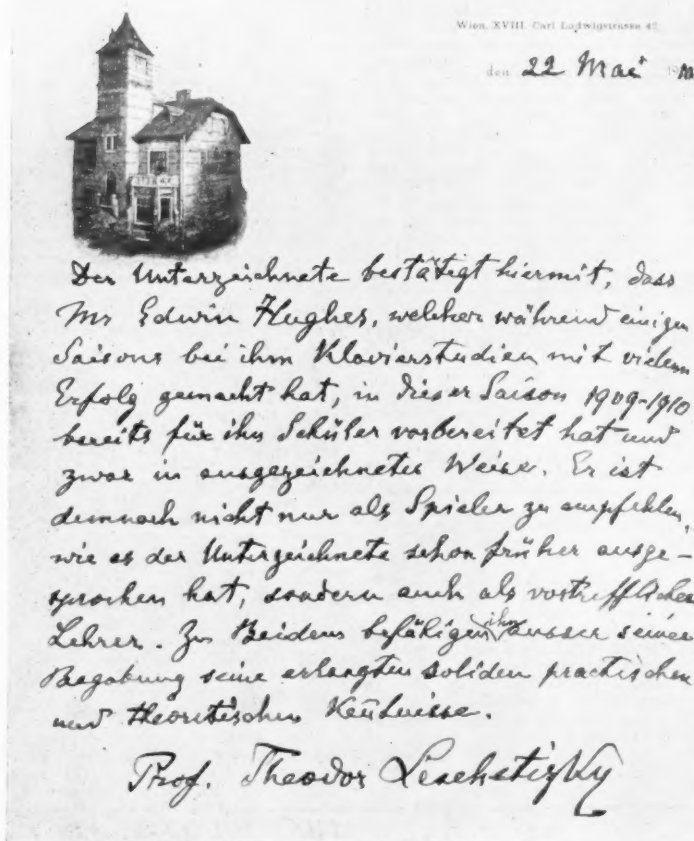 Wien, XVIII. Carl Ludwigstrasse 42.
den 22 Mai 19
Der Unterzeichnete bestätigt hiermit, dass
Mr Edwin Hughes, welcher während einigen
Saisons bei ihm Klavierstudien mit vielem
Erfolg gemacht hat, in dieser Saison 1909-1910
bereits für ihn Schüler vorbereitet hat und
zwar in ausgezeichneter Weise. Er ist
demnach nicht nur als Spieler zu empfehlen,
wie es der Unterzeichnete schon früher ausge-
sprochen hat, sondern auch als vortrefflicher
Lehrer. Zu Beidem befähigen ihn ausser seiner
Begabung seine erlangten soliden practischen
und theoretischen Keñtnisse.
Prof. Theodor Leschetizky